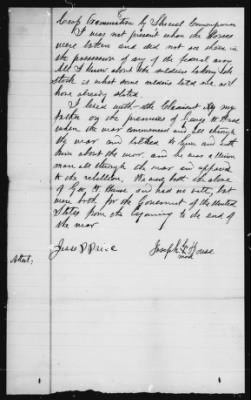 Cross Examination by Special Commissioner
I was not present when the Horses
were taken and did not see them in
the possession of any of the federal army
All I know about the soldiers taking his
stock is what some persons told me as I
have already stated.
I lived with the Claimant by my
father on the premises of George W House
when the war commenced and all through
the war and talked to him and with
him about the war and he was a Union
man all through the war and opposed
to the rebellion. He may both the above
of Geo W House and had no vote, but
were both for the Government of the United
States from the beginning to the end of
the war
Jesse D Price
Joseph G House
Attest;